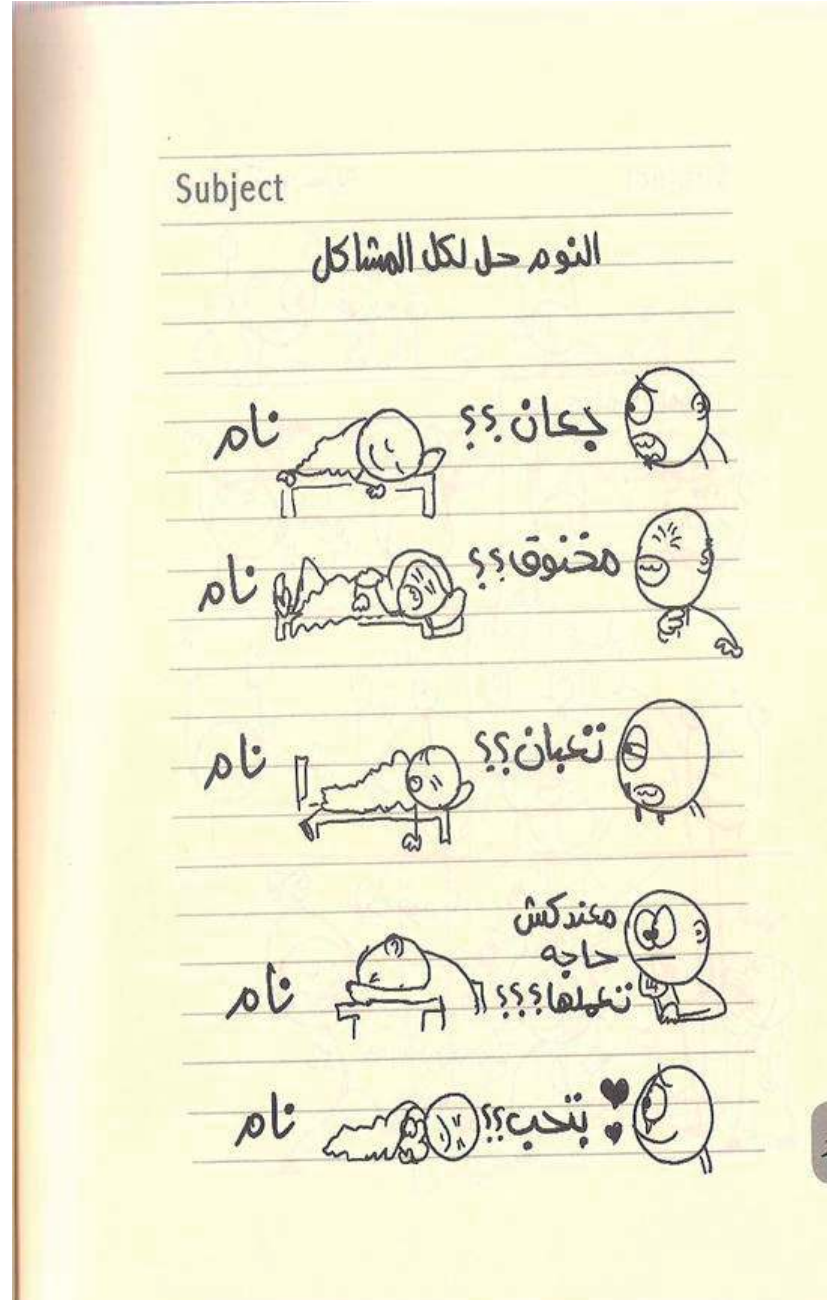 Subject
النوم حل لكل المشاكل
جعان؟؟ نام
مخنوق؟؟ نام
تعبان؟؟ نام
معندكش
حاجه
تعملها؟؟؟ نام
بتحب؟؟ نام